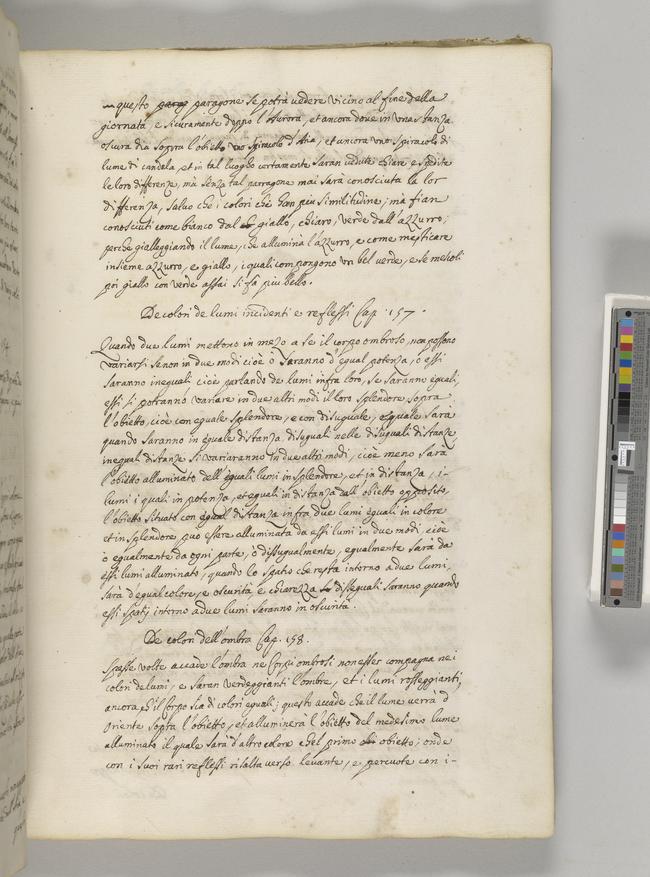 questo parag paragone se potrà vedere vicino al fine della
giornata, e sicuramente doppo l'Aurora, et ancora dove in una stanza
oscura dia sopra l'obietto uno spiracolo d'Aria, et ancora uno spiracolo di
lume di candela, et in tal luogho certamente saran vedute chiare e spedite
le loro differenze, mà senza tal parragone mai sarà conosciuta la lor
differenza, salvo che i colori che han più similitudine; mà fian
conosciuti come bianco dal giallo, chiaro, verde dall'azzurro;
perche gialleggiando il lume, che allumina l'azzurro, e come mesticare
insieme azzurro, e giallo, i quali compongono un bel verde, e se mescoli
poi giallo con verde assai si fà piu bello.
De colori de lumi incidenti e reflessi Cap. 157.
Quando due lumi mettono in mezo a se il corpo ombroso, non possono
variarsi se non in due modi cioè ò saranno d'egual potenza, ò essi
saranno ineguali cioè parlando de lumi infra loro, se saranno eguali,
essi si potranno variare in due altri modi il loro splendore sopra
l'obietto, cioè con eguale splendore, e con disuguale, eguale sarà
quando saranno in eguale distanza, disuguali nelle disuguali distanze
inegual distanze si variaranno in due altri modi, cioè meno sarà
l'obietto alluminato dell'eguali lumi in splendore, et in distanza, i-
lumi i quali in potenza, et eguali in distanza dall'obietto opposito,
l'obietto situato con equal distanza infra due lumi eguali in colore
et in splendore puo essere alluminata da essi lumi in due modi, cioè
ò egualmente da ogni parte, ò dissugualmente, egualmente sarà da
essi lumi alluminato, quando lo spatio che resta intorno a due lumi,
sarà d'egual colore, e oscurità e chiarezza disseguali saranno quando
essi spatij intorno a due lumi saranno in oscurità.
De colori dell'ombra Cap. 158.
Spesse volte accade l'ombra ne Corpi ombrosi non esser compagna ne i
colori de lumi, e saran verdeggianti l'ombre, et i lumi rosseggianti,
ancora ch'il Corpo sia di colori eguali; questo accade che il lume verrà d
oriente sopra l'obietto, et alluminera l'obietto del medesimo lume
alluminato il quale sarà d'altro colore chel primo obietto; onde
con i suoi rari reflessi risalta verso levante, e percuote con i-